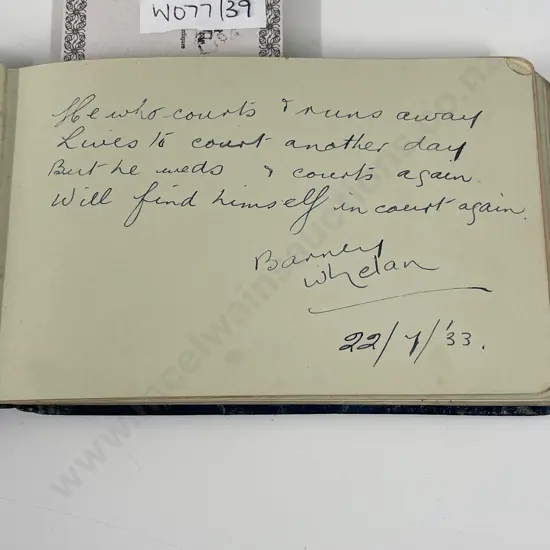 W077/39
He who courts & runs away
Lives to court another day
But he weds & courts again
Will find himself in court again.
Barney
Whelan
22/7/'33.